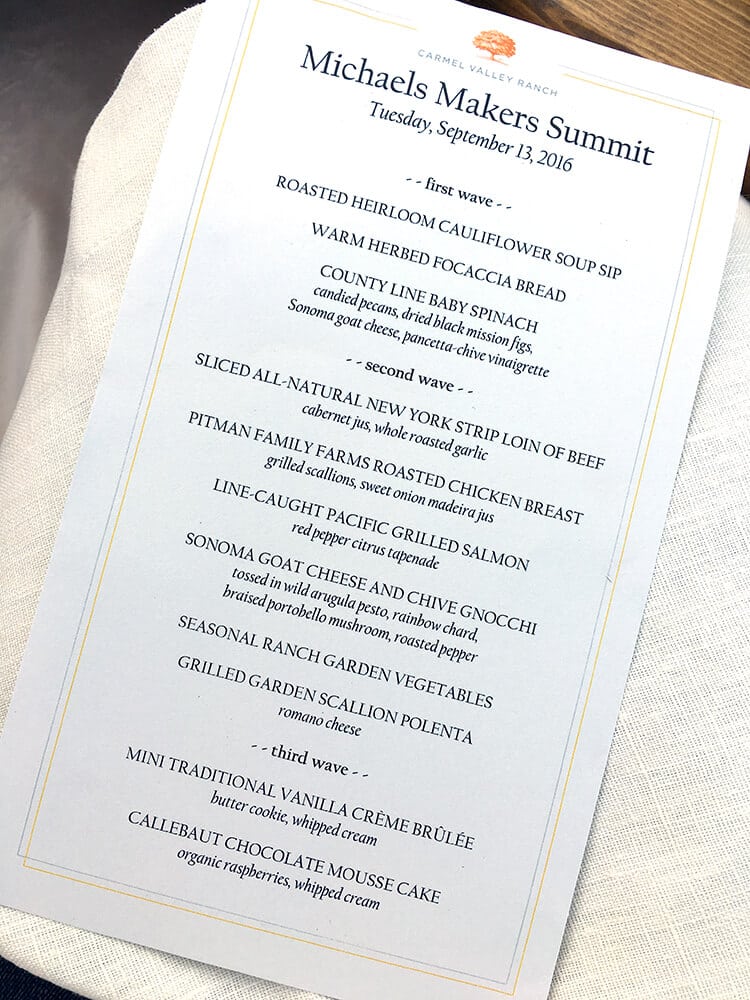 CARMEL VALLEY RANCH
Michaels Makers Summit
Tuesday, September 13, 2016
- - first wave - -
ROASTED HEIRLOOM CAULIFLOWER SOUP SIP
WARM HERBED FOCACCIA BREAD
COUNTY LINE BABY SPINACH
candied pecans, dried black mission figs,
Sonoma goat cheese, pancetta-chive vinaigrette
- - second wave - -
SLICED ALL-NATURAL NEW YORK STRIP LOIN OF BEEF
cabernet jus, whole roasted garlic
PITMAN FAMILY FARMS ROASTED CHICKEN BREAST
grilled scallions, sweet onion madeira jus
LINE-CAUGHT PACIFIC GRILLED SALMON
red pepper citrus tapenade
SONOMA GOAT CHEESE AND CHIVE GNOCCHI
tossed in wild arugula pesto, rainbow chard,
braised portobello mushroom, roasted pepper
SEASONAL RANCH GARDEN VEGETABLES
GRILLED GARDEN SCALLION POLENTA
romano cheese
- - third wave - -
MINI TRADITIONAL VANILLA CRÈME BRÛLÉE
butter cookie, whipped cream
CALLEBAUT CHOCOLATE MOUSSE CAKE
organic raspberries, whipped cream